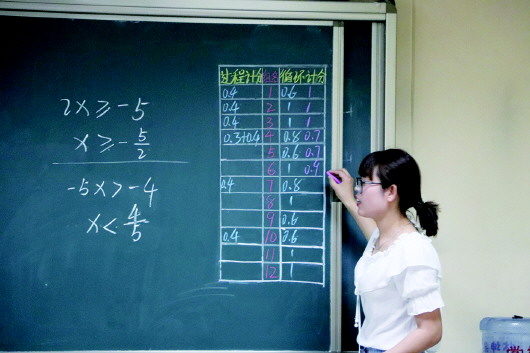 2x ≥ -5
x ≥ -5/2
-5x > -4
x < 4/5
过程计分 循环计分
0.4 1 0.6 1
0.4 2 1 1
0.4 3 1 1
0.3+0.4 4 0.8 0.7
5 0.6 0.7
6 1 0.9
0.4 7 0.8
8 1
9 0.6
0.4 10 0.6
11 1
12 1